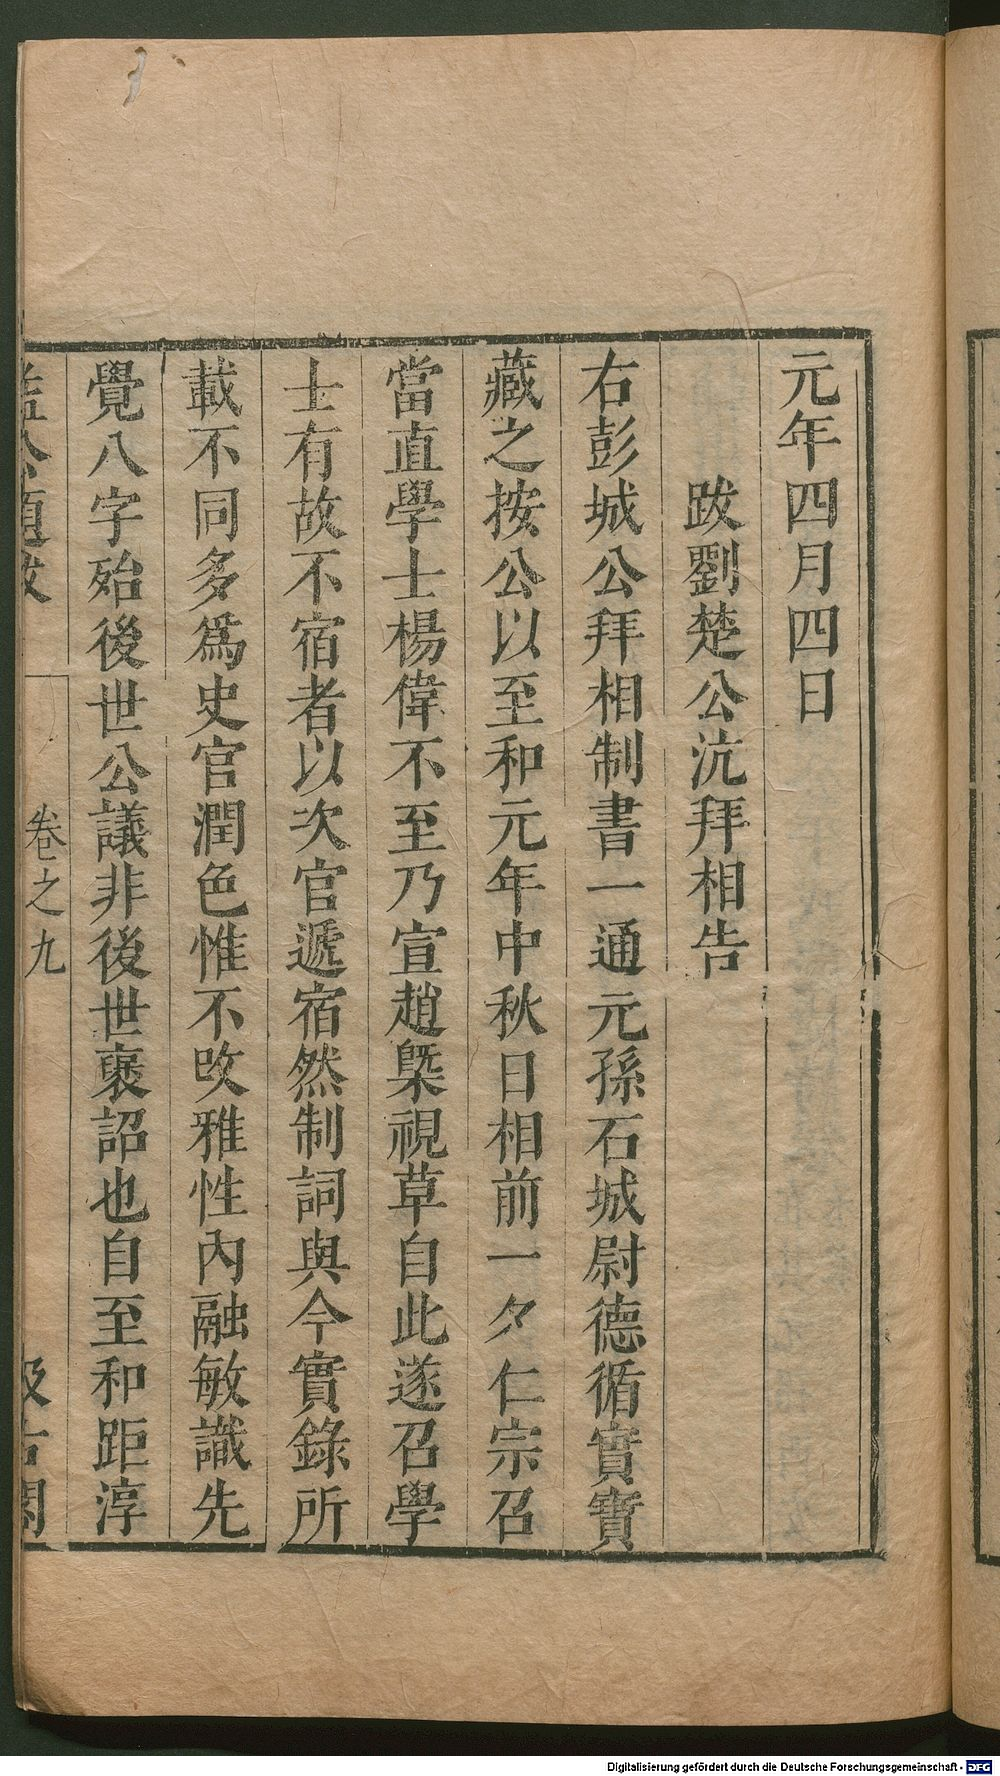 元年四月四日
跋劉楚公沆拜相告
右彭城公拜相制書一通元孫石城尉德循實寶
藏之按公以至和元年中秋日相前一夕仁宗召
當直學士楊偉不至乃宣趙槩視草自此遂召學
士有故不宿者以次官遞宿然制詞與今實錄所
載不同多爲史官潤色惟不改雅性內融敏識先
覺八字殆後世公議非後世褒詔也自至和距淳
益公題跋
卷之九
汲古閣
Digitalisierung gefördert durch die Deutsche Forschungsgemeinschaft - DFG